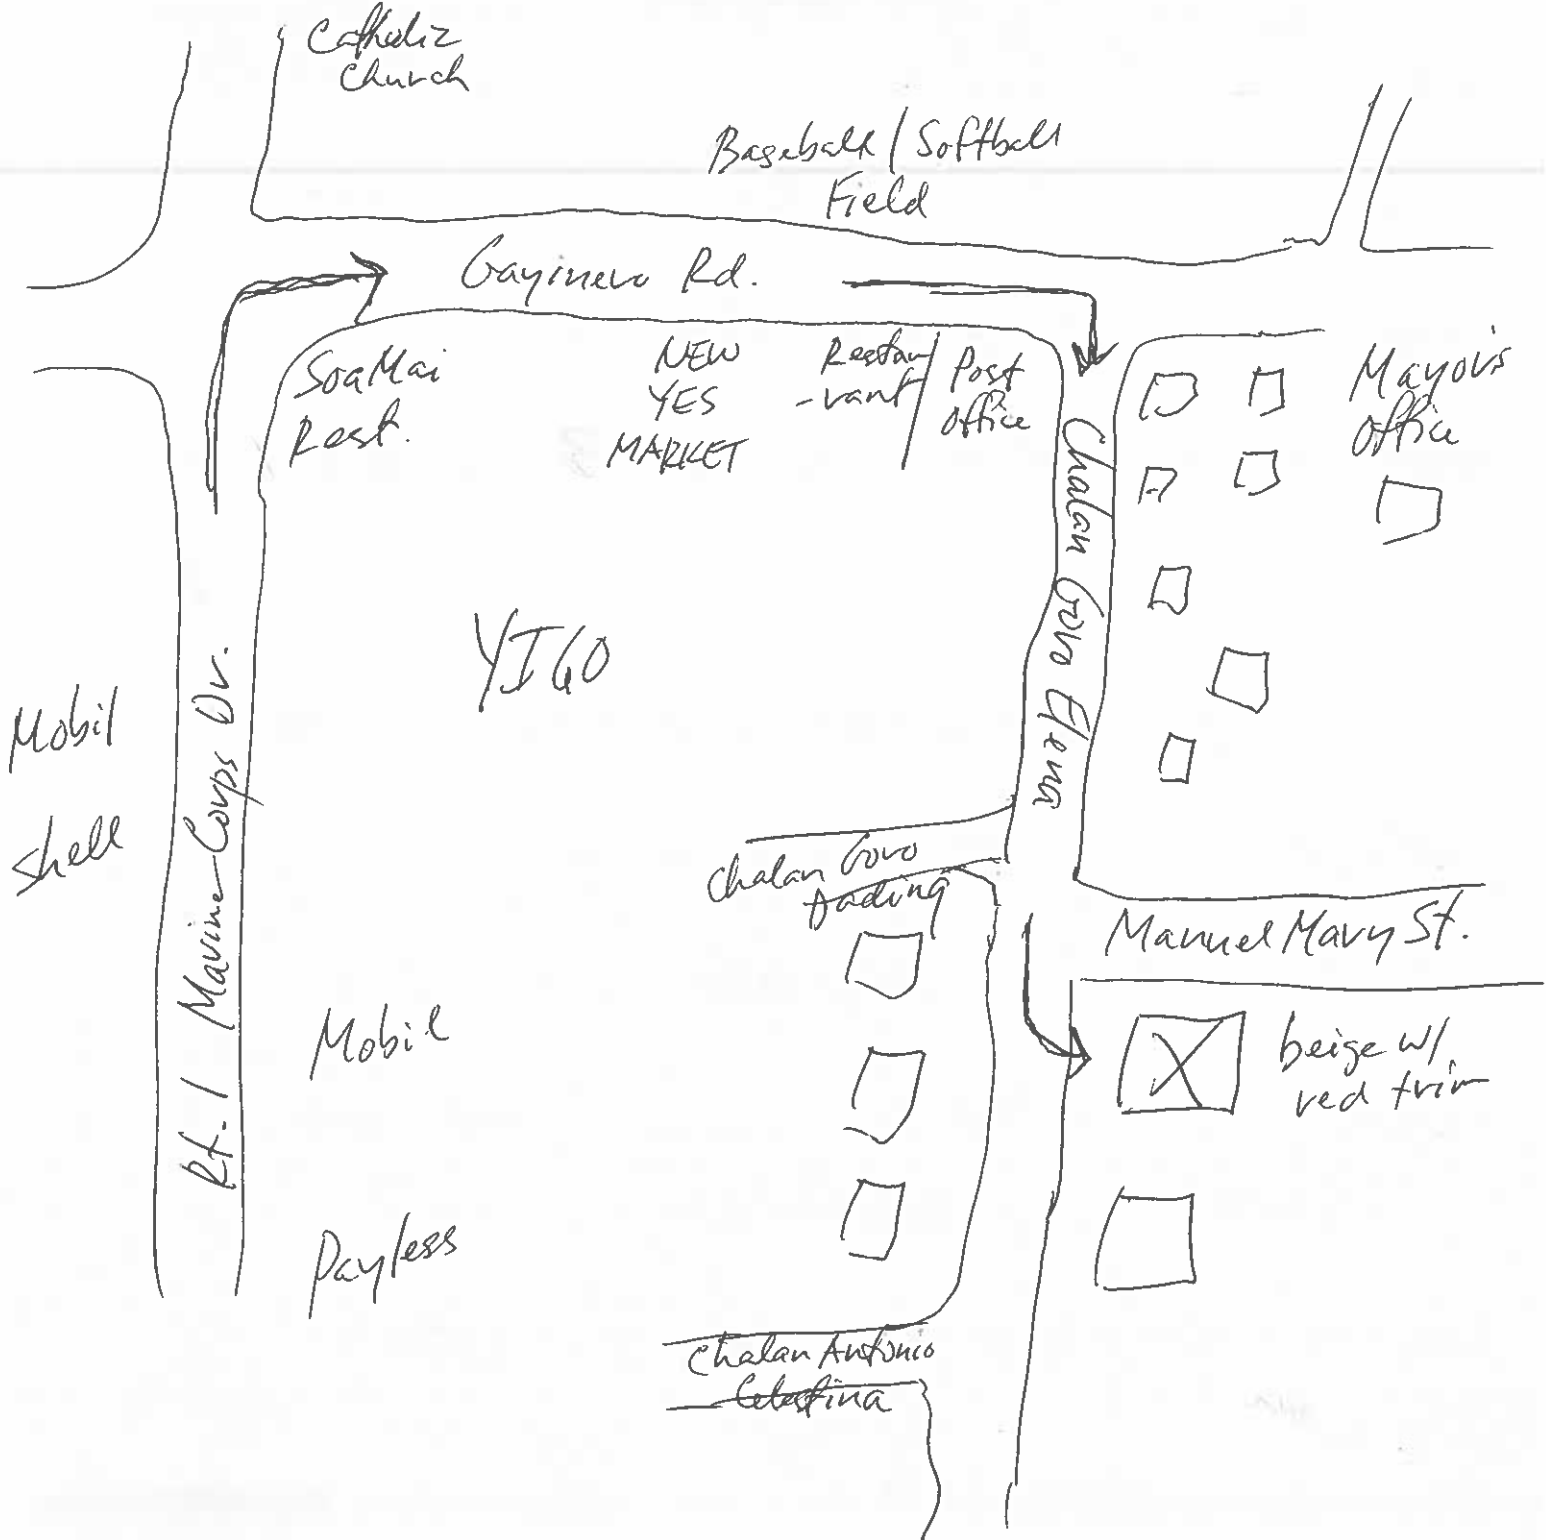 Catholic
Church
Baseball / Softball
Field
Gayinero Rd.
SoaMai
Rest.
NEW
YES
MARKET
Restau
-rant
Post
Office
Mayor's
Office
Chalan Goro Elena
YIGO
Mobil
Shell
Rt. 1 Marine Corps Dr.
Chalan Goro
Manuel Mary St.
Mobil
beige w/
red trim
Payless
Chalan Antonio
Celestina